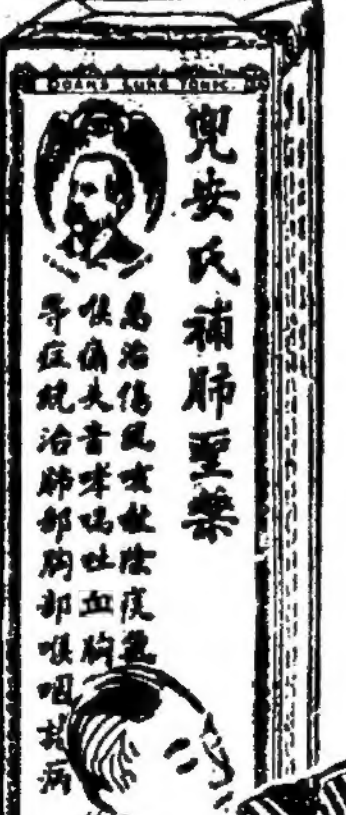 DOANS LUNG TONIC.
兜安氏補肺聖藥
為治傷風咳嗽除痰
喉痛失音哮喘吐血胸
等症統治肺部胸部喉咽諸病